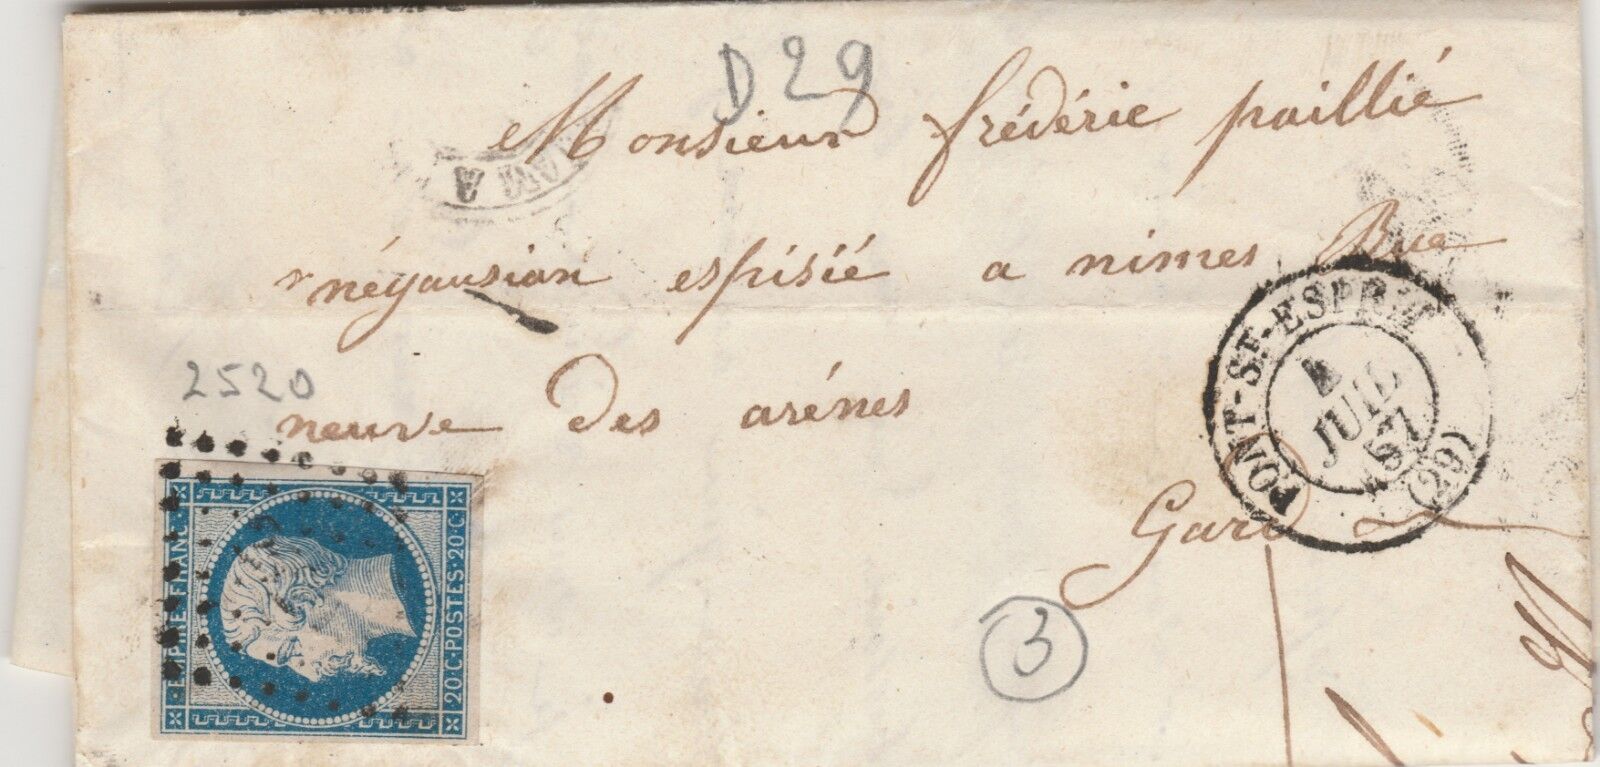 D29
Monsieur frédéric paillié
négausian espisié a nimes Rue
2520
neuve des arénes
Gard
PONT-ST-ESPRIT (29)
4
JUIL
57
3
EMPIRE FRANC
20·C·POSTES·20·C